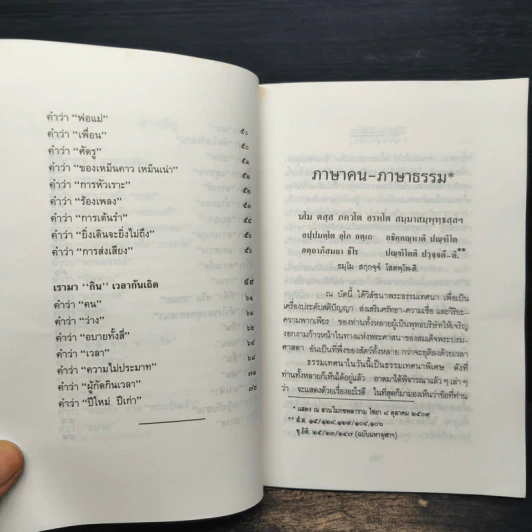 คำว่า "พ่อแม่" ๕๐
คำว่า "เพื่อน" ๕๐
คำว่า "ศัตรู" ๕๑
คำว่า "ของเหม็นคาว เหม็นเน่า" ๕๑
คำว่า "การหัวเราะ" ๕๒
คำว่า "ร้องเพลง"
คำว่า "การเต้นรำ" ๕๔
คำว่า "ยิ่งเดินจะยิ่งไม่ถึง"
คำว่า "การส่งเสียง"
เรามา "กิน" เวลากันเถิด ๕๙
คำว่า "คน" ๖๑
คำว่า "ว่าง"
คำว่า "อบายทั้งสี่"
คำว่า "เวลา" ๖๘
คำว่า "ความไม่ประมาท"
คำว่า "ผู้กัดกินเวลา" ๗๒
คำว่า "ปีใหม่ ปีเก่า" ๗๒
ภาษาคน-ภาษาธรรม*
นโม ตสฺส ภควโต อรหโต สมฺมาสมฺพุทฺธสฺสฯ
อปฺปมตฺโต อุโภ อตฺเถ อธิคฺคณฺหาติ ปณฺฑิโต
อตฺถาภิสมยา ธีโร ปณฺฑิโตติ ปวุจฺจตี-ติ.**
ธมฺโม สกฺกจฺจํ โสตพฺโพ-ติ.
ณ บัดนี้ ได้วิสัชนาพระธรรมเทศนา เพื่อเป็น
เครื่องประดับสติปัญญา ส่งเสริมศรัทธา-ความเชื่อ และวิริยะ-
ความพากเพียร ของท่านทั้งหลายผู้เป็นพุทธบริษัทให้เจริญ
งอกงามก้าวหน้าในทางแห่งพระศาสนาของสมเด็จพระบรม-
ศาสดา อันเป็นที่พึ่งของสัตว์ทั้งหลาย กว่าจะยุติลงด้วยเวลา
ธรรมเทศนาในวันนี้เป็นธรรมเทศนาพิเศษ ดังที่
ท่านทั้งหลายก็เห็นได้อยู่แล้ว อาตมาได้พิจารณาแล้ว ๆ เล่า ๆ
ว่า จะแสดงด้วยเรื่องอะไรดี ในที่สุดก็มามองเห็นว่าข้อที่ท่าน
* แสดง ณ สวนโมกขพลาราม ไชยา ๘ ตุลาคม ๒๕๐๙
** สํ.ส. ๑๕/๑๒๘,๑๒๙/๑๐๔,๑๐๖
ขุ.อิติ. ๒๕/๒๓/๒๔๗ (ฉบับมหาจุฬาฯ)